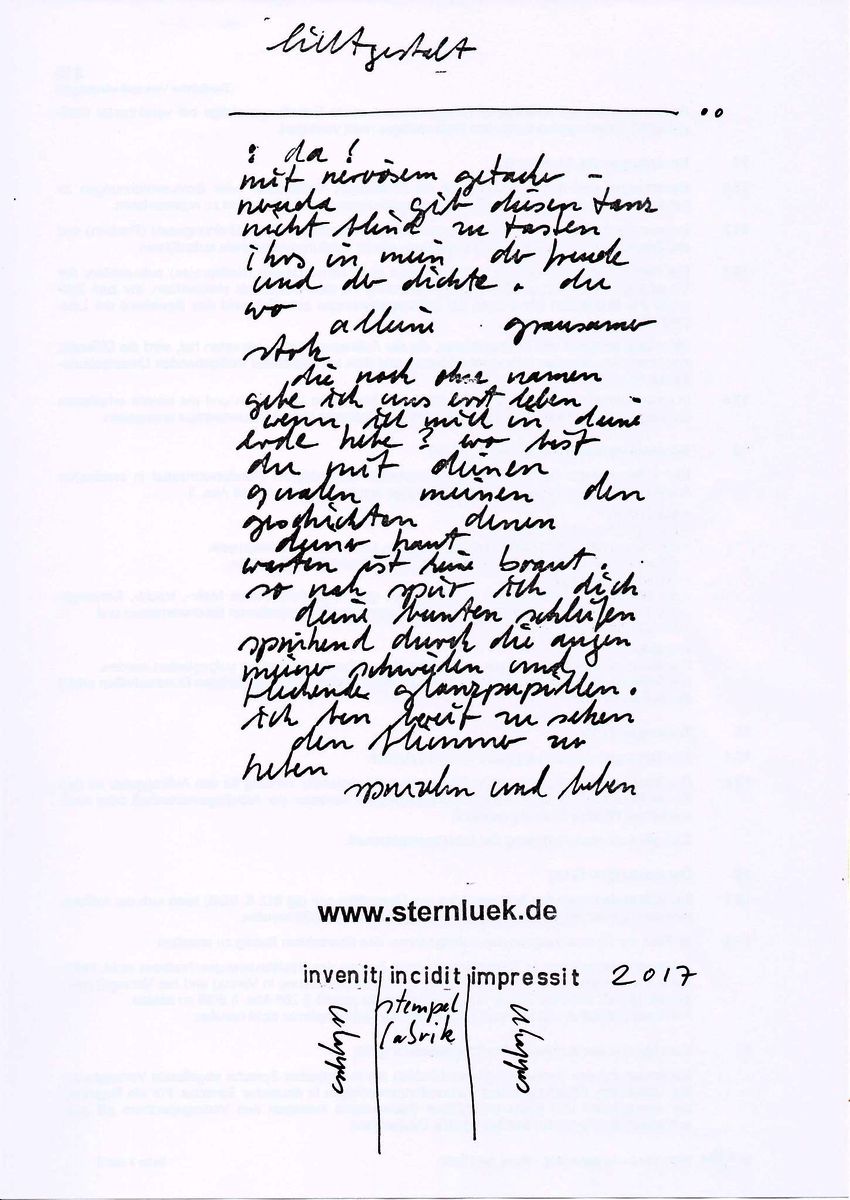 lichtgestalt
: da !
mit nervösem getacker –
neruda gib diesen tanz
nicht blind zu tasten
ihrs in mein der freude
und der dichte . du
wo
allein grausamer
stok
die noch ohne namen
gebe ich uns erst leben
wenn ich mich in deine
erde hebe ? wo bist
du mit deinen
qualen meinen den
geschichten denen
deiner haut
warten ist keine braut .
so nah spür ich dich
deine bunten schleifen
sprühend durch die augen
meiner schwülen und
bleckender glanzpupillen .
ich bin bereit zu sehen
den zu
heben
und leben
www.sternluek.de
invenit incidit impressit 2017
stempel
fabrik